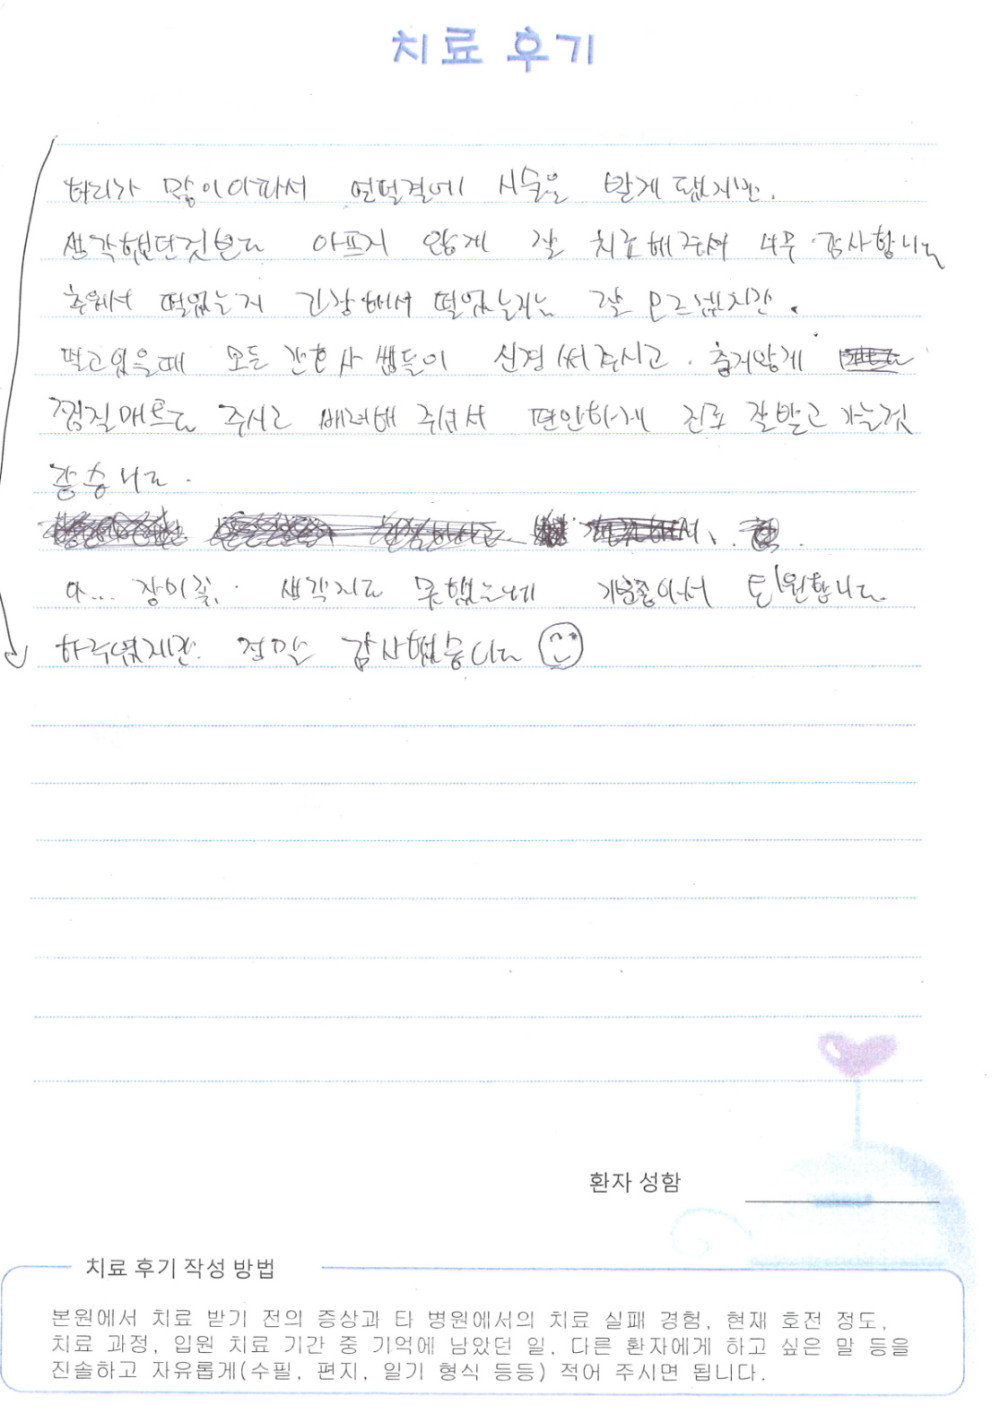 치료 후기
허리가 많이아파서 얼떨결에 시술을 받게 됐지만.
생각했던것보다 아프지 않게 잘 치료해주셔서 너무 감사합니다
추워서 떨었는지 긴장해서 떨었는지는 잘 모르겠지만.
떨고있을때 모든 간호사 쌤들이 신경써주시고. 춥지않게
찜질매트도 주시고 배려해 주셔서 편안하게 진료 잘받고 가는것
같습니다.
아... 장미꽃, 생각지도 못했는데 기분좋아서 퇴원합니다.
하루였지만. 정말 감사했습니다
환자 성함
치료 후기 작성 방법
본원에서 치료 받기 전의 증상과 타 병원에서의 치료 실패 경험, 현재 호전 정도,
치료 과정, 입원 치료 기간 중 기억에 남았던 일, 다른 환자에게 하고 싶은 말 등을
진솔하고 자유롭게(수필, 편지, 일기 형식 등등) 적어 주시면 됩니다.